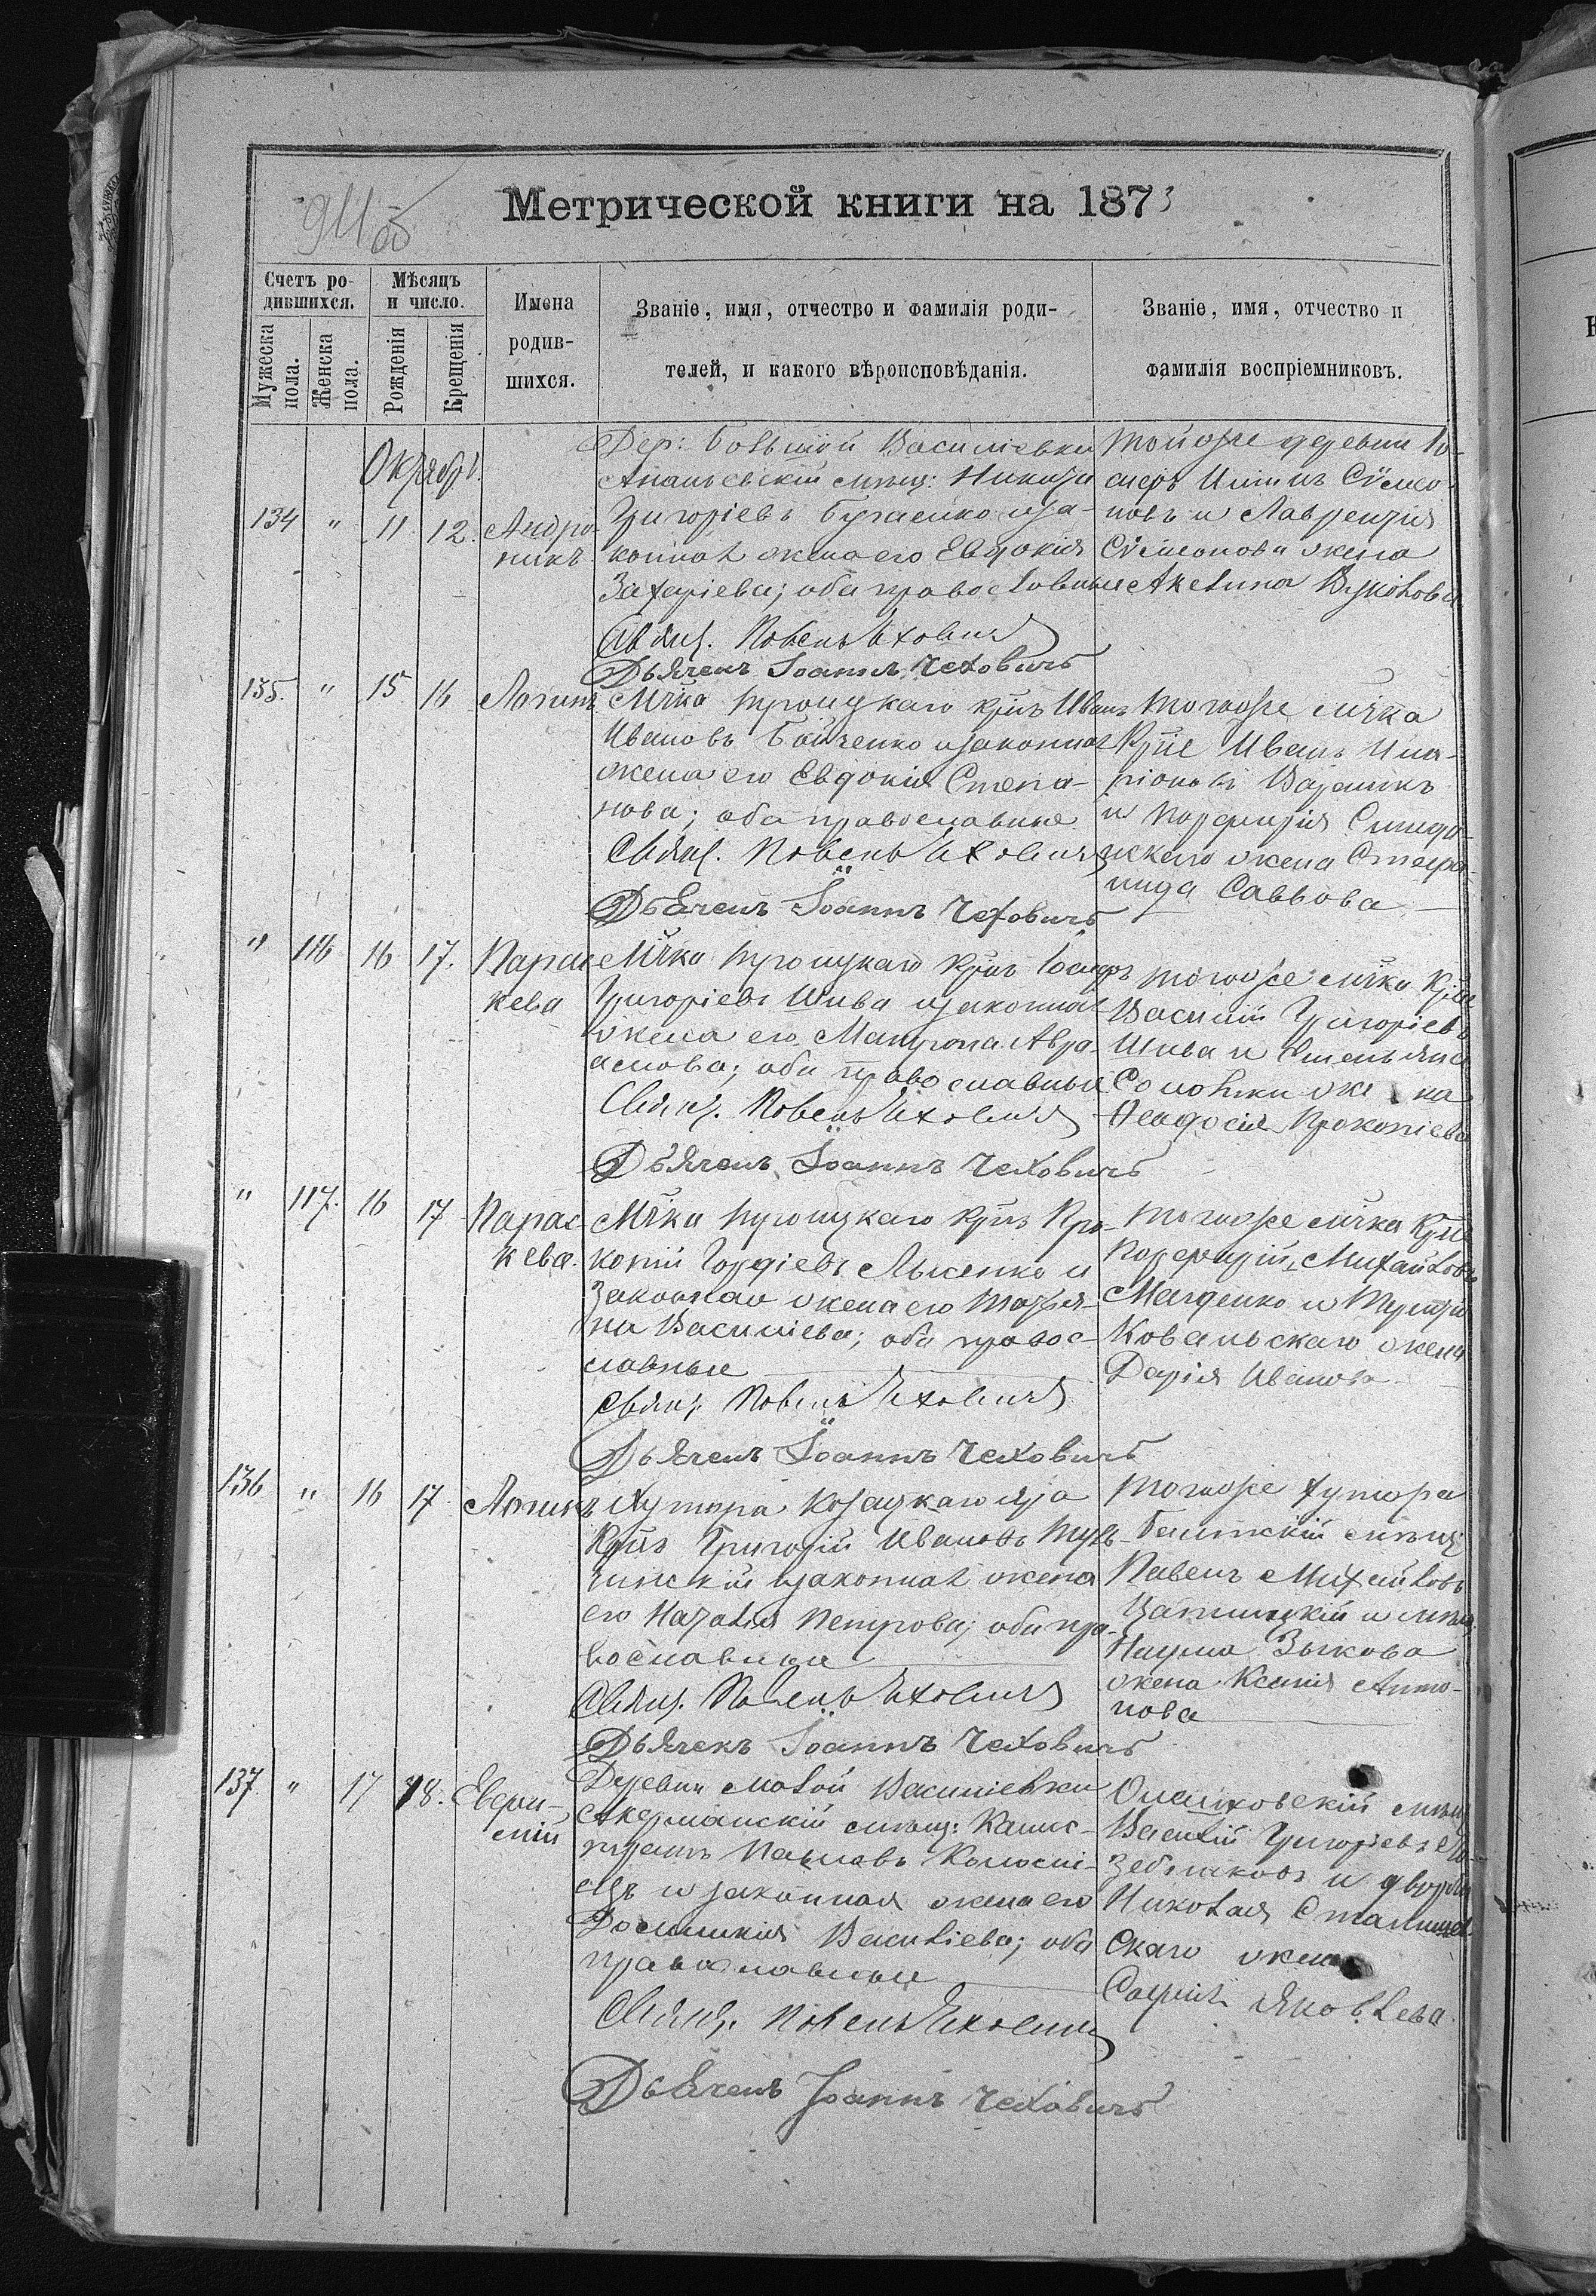 911 об
Метрической книги на 1873
Счетъ ро-
дившихся.
Мѣсяцъ
и число.
Мужеска пола.
Женска пола.
Рожденія
Крещенія
Имена
родив-
шихся.
Званіе, имя, отчество и фамилія роди-
телей, и какого вѣроисповѣданія.
Званіе, имя, отчество и
фамилія воспріемниковъ.
Октябрь.
134 " 11 12. Андро-
никъ
Дер: Большой Василіевки
Ананьевскій мѣщ: Никита
Григоріевъ Бугаенко и за-
конная жена его Евдокія
Захаріева; оба православные
Свящ. Павелъ
Дьячекъ Іоаннъ Чеховичъ
Тойже деревни
Симео-
новъ и Лаврентія
Симеонова жена
Акелина
135. " 15 16 Логинъ
Мѣчка Троицкаго крѣ Иванъ
Ивановъ Бойченко и законная
жена его Евдокія Степа-
нова; оба православные
Свящ. Павелъ
Дьячекъ Іоаннъ Чеховичъ
Тогоже мѣчка
Крѣе Иванъ Ила-
ріоновъ
и Порфирія
жена Стефа-
нида Саввова
" 116 16 17. Парас-
кева
Мѣчка Троицкаго крѣ
Григоріевъ Шива и законная
жена его Матрона Авра-
амова; оба православные
Свящ. Павелъ
Дьячекъ Іоаннъ Чеховичъ
Тогоже мѣчка Крѣе
Василій Григоріевъ
Шива и Емельяна
жена
Феодосія Прокопіева
" 117. 16 17 Парас-
кева.
Мѣчка Троицкаго крѣ Про-
копій Гордіевъ Лысенко и
Законная жена его Татья-
на Василіева; оба правос-
лавные
Свящ. Павелъ
Дьячекъ Іоаннъ Чеховичъ
Тогоже мѣчка Крѣе
Порфирій Михайловъ
и
Ковальскаго жена
Дарія Иванова
136 " 16 17 Логинъ
Хутора
Крѣ Григорій Ивановъ Туль-
чинскій и законная жена
его Наталія Петрова; оба пра-
вославные
Свящ. Павелъ
Дьячекъ Іоаннъ Чеховичъ
Тогоже хутора
Балтскій мѣщ:
Павелъ Михайловъ
и мѣщ.
Наума Зыкова
жена Ксенія Анто-
нова
137. " 17 18. Евфи-
мій
Деревни Малой Василіевки
Аккерманскій мѣщ: Калис-
тратъ Павловъ
и законная жена его
Домникія Василіева; оба
православные
Свящ. Павелъ
Дьячекъ Іоаннъ Чеховичъ
мѣщ
Василій Григоріевъ
и дворян
Николая
скаго жена
Софія Яковлева.